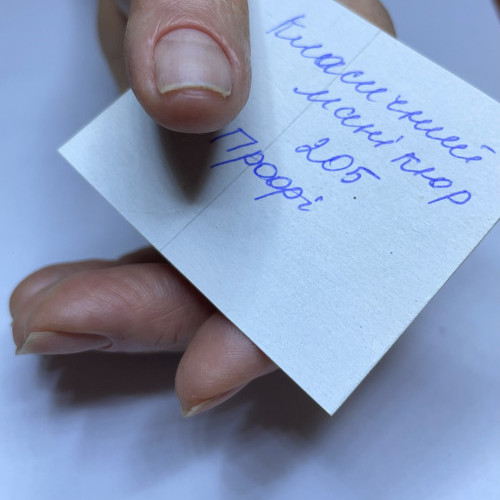 Класичний
манікюр
205
Профі